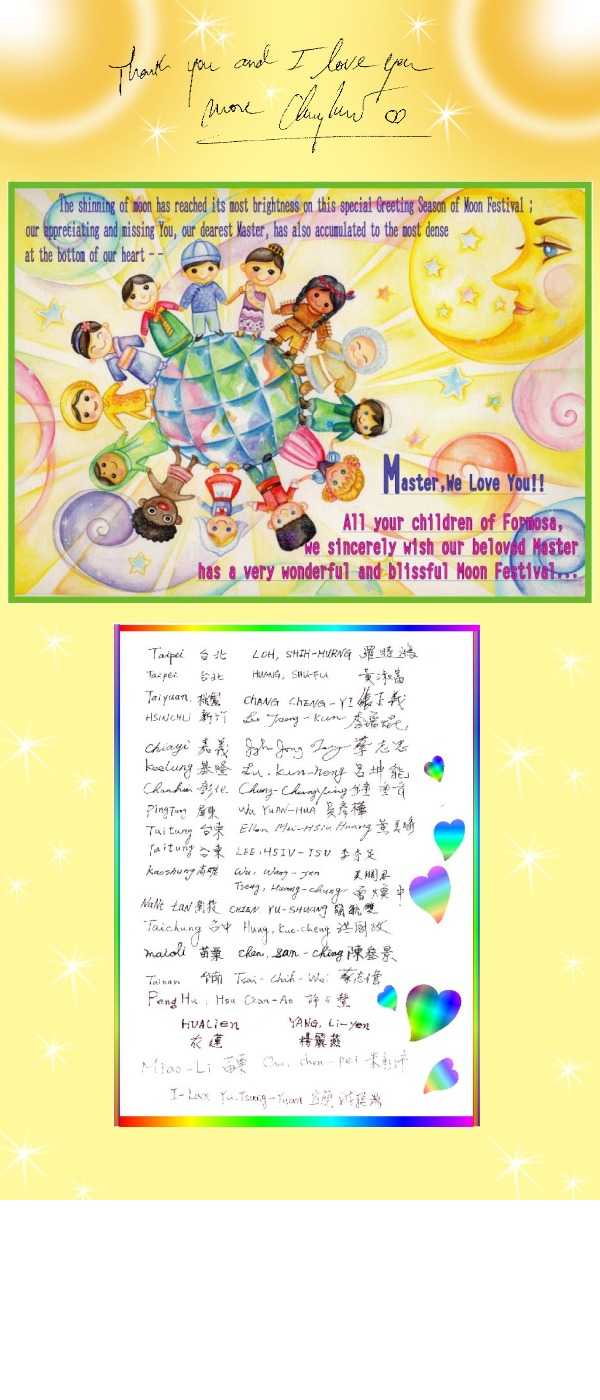 Thank you and I love you
more
The shinning of moon has reached its most brightness on this special Greeting Season of Moon Festival ;
our appreciating and missing You, our dearest Master, has also accumulated to the most dense
at the bottom of our heart --
Master,We Love You!!
All your children of Formosa,
we sincerely wish our beloved Master
has a very wonderful and blissful Moon Festival...
Taipei 台北 LOH, SHIH-MURNG
Taipei 台北 HUANG, SHU-FU 黃淑富
Taiyuan 桃園 CHANG CHENG-YI 張正義
HSINCHU 新竹
Chiayi 嘉義
Keelung 基隆 Lu. Kun-neng 呂坤能
彰化
Pingtung 屏東 WU YUAN-HUA
Taitung 台東 Ellen Mei-Hsiu Huang
Taitung 台東 LEE, HSIU-TSU
Kaoshung 高雄
Tseng, Huang-chung
CHIEN YU-SHUANG
Taichung 台中 Hung, Kuo-cheng
miaoli 苗栗 Chen, San-Ching 陳參景
Tainan 台南 Tsai-Chih-Wei
Peng Hu,
HUALIEN YANG, Li-yen
花蓮 楊麗燕
Miao-Li 苗栗
I-Lan Yu. Tsung-Yuan 宜蘭